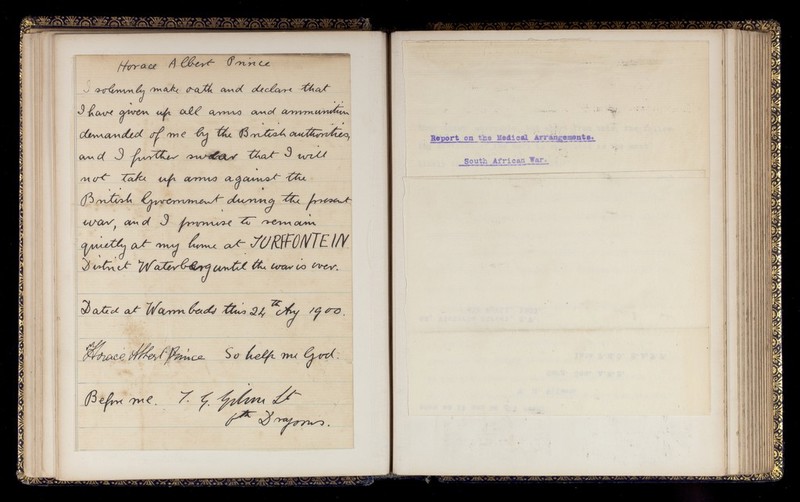 Horace Albert Prince
I solemnly make oath and declare that
I have given up all arms and ammunition
demanded of me by the British authorities,
and I further swear that I will
not take up arms against the
British Government during the present
war, and I promise to remain
quietly at my home at
District Waterberg until the war is over.
Dated at Warmbads this 24th Aug 1900.
Horace Albert Prince So help me God.
Before me. T. G. Lt
6th Dragoons.
Report on the Medical Arrangements.
South African War.